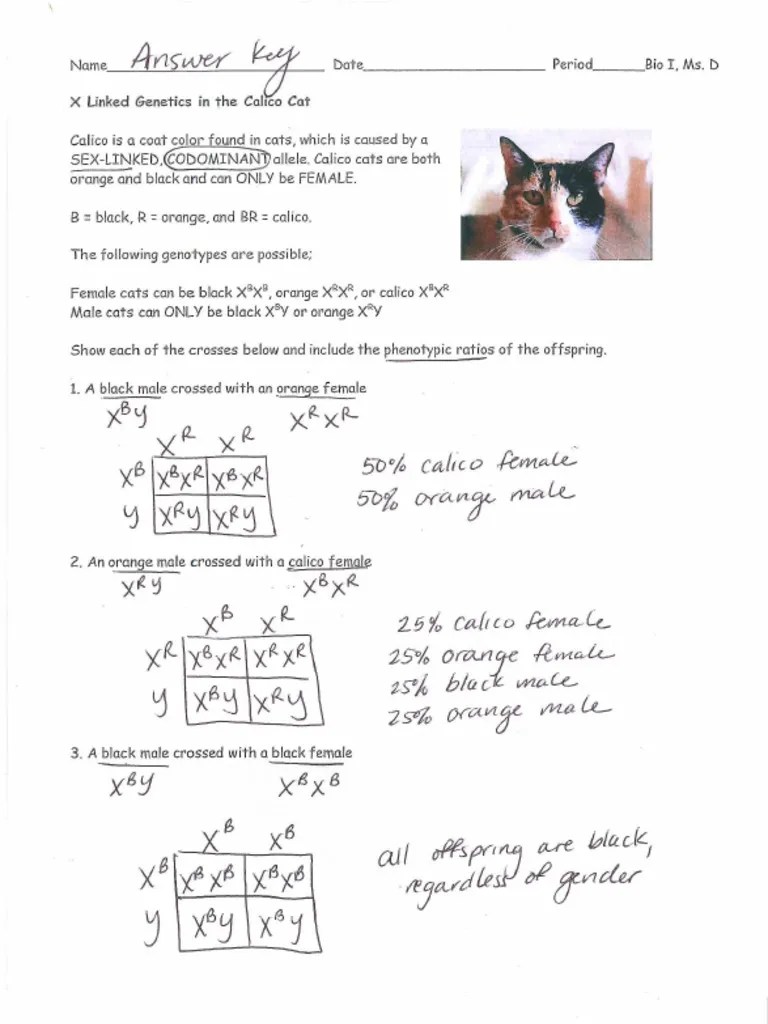 Name Answer Key Date Period Bio I, Ms. D
X Linked Genetics in the Calico Cat
Calico is a coat color found in cats, which is caused by a
SEX-LINKED, CODOMINANT allele. Calico cats are both
orange and black and can ONLY be FEMALE.
B = black, R = orange, and BR = calico.
The following genotypes are possible;
Female cats can be black XᴮXᴮ, orange XᴿXᴿ, or calico XᴮXᴿ
Male cats can ONLY be black XᴮY or orange XᴿY
Show each of the crosses below and include the phenotypic ratios of the offspring.
1. A black male crossed with an orange female
XᴮY XᴿXᴿ
Xᴿ Xᴿ
Xᴮ XᴮXᴿ XᴮXᴿ
Y XᴿY XᴿY
50% calico female
50% orange male
2. An orange male crossed with a calico female
XᴿY XᴮXᴿ
Xᴮ Xᴿ
Xᴿ XᴮXᴿ XᴿXᴿ
Y XᴮY XᴿY
25% calico female
25% orange female
25% black male
25% orange male
3. A black male crossed with a black female
XᴮY XᴮXᴮ
Xᴮ Xᴮ
Xᴮ XᴮXᴮ XᴮXᴮ
Y XᴮY XᴮY
all offspring are black,
regardless of gender